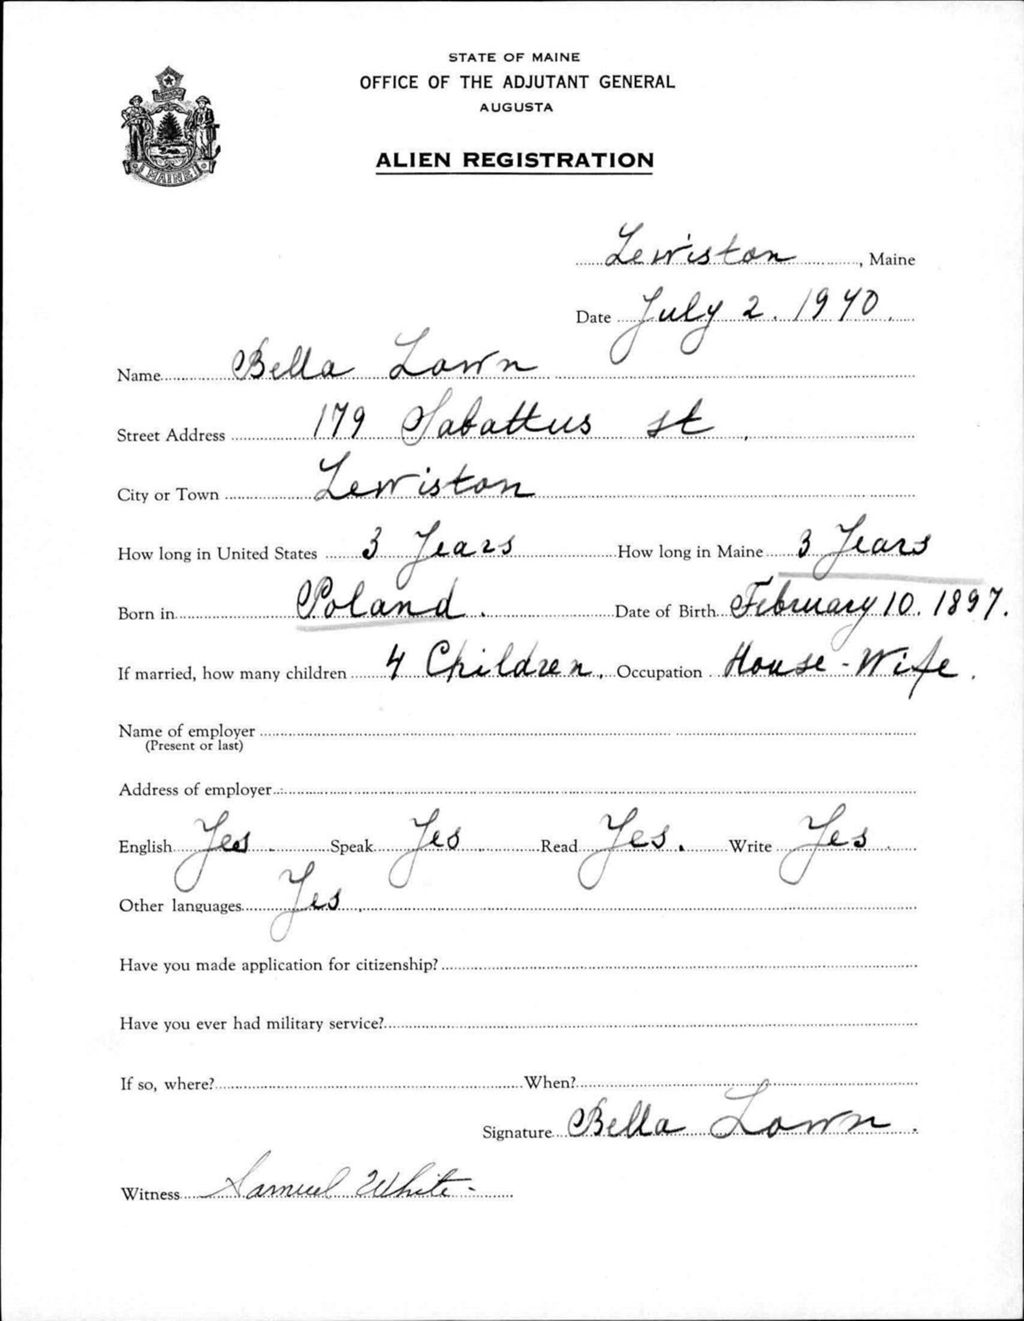 STATE OF MAINE
OFFICE OF THE ADJUTANT GENERAL
AUGUSTA
ALIEN REGISTRATION
MAINE
Lewiston, Maine
Date July 2. 1940.
Name Bella Lown
Street Address 179 Sabattus st
City or Town Lewiston
How long in United States 3 Years How long in Maine 3 Years
Born in Poland. Date of Birth February 10. 1897.
If married, how many children 4 Children, Occupation House-Wife.
Name of employer
(Present or last)
Address of employer
English Yes. Speak Yes. Read Yes. Write Yes.
Other languages Yes.
Have you made application for citizenship?
Have you ever had military service?
If so, where? When?
Signature Bella Lown.
Witness Samuel White-